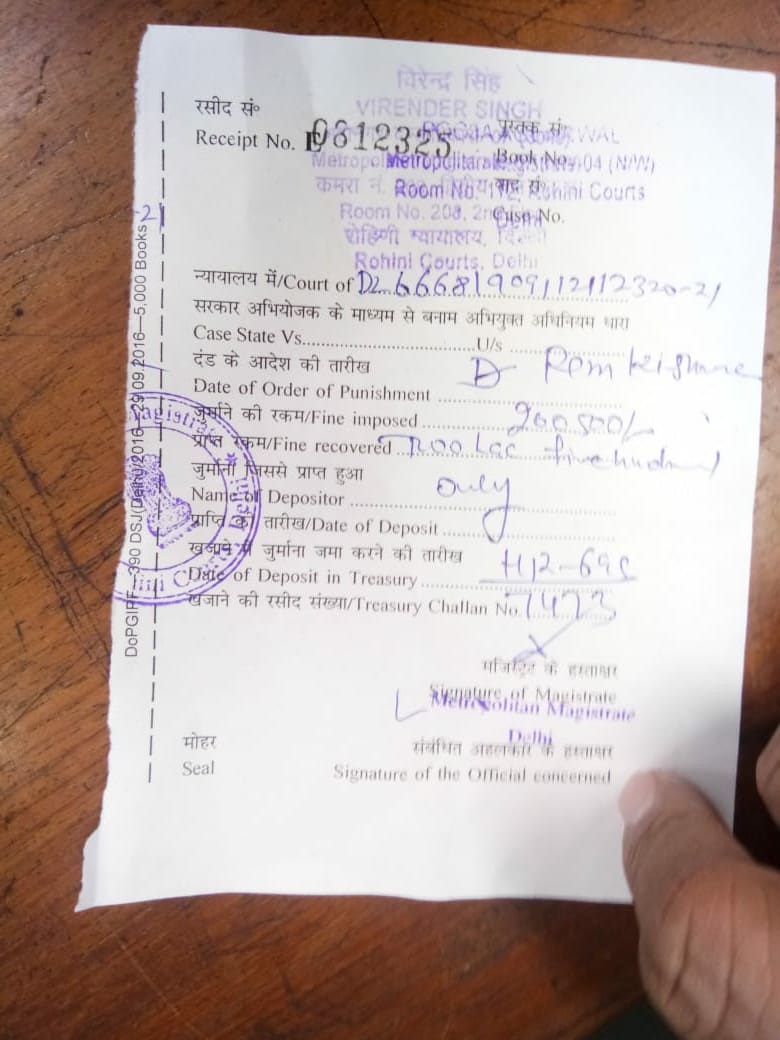 विरेन्द्र सिंह
VIRENDER SINGH
रसीद सं०
पुस्तक सं०
Receipt No. 0612325
Book No.
Metropolitan
04 (N/W)
कमरा नं.
वाद सं०
Room No. 112, Rohini Courts
Room No. 208,
Case No.
रोहिणी न्यायालय, दिल्ली
Rohini Courts, Delhi
न्यायालय में/Court of DL66681909112112320-21
सरकार अभियोजक के माध्यम से बनाम अभियुक्त अधिनियम धारा
Case State Vs. U/s
दंड के आदेश की तारीख
Ram
Date of Order of Punishment
जुर्माने की रकम/Fine imposed 200500/-
प्राप्त रकम/Fine recovered Lac
जुर्माना जिससे प्राप्त हुआ
only
Name of Depositor
प्राप्ति की तारीख/Date of Deposit
खजाने में जुर्माना जमा करने की तारीख
Date of Deposit in Treasury
खजाने की रसीद संख्या/Treasury Challan No. 1473
मजिस्ट्रेट के हस्ताक्षर
Signature of Magistrate
Metropolitan Magistrate
Delhi
मोहर
संबंधित अहलकार के हस्ताक्षर
Seal
Signature of the Official concerned
DoPGIPF—390 DSJ(Delhi)/2016—29.09.2016—5,000 Books